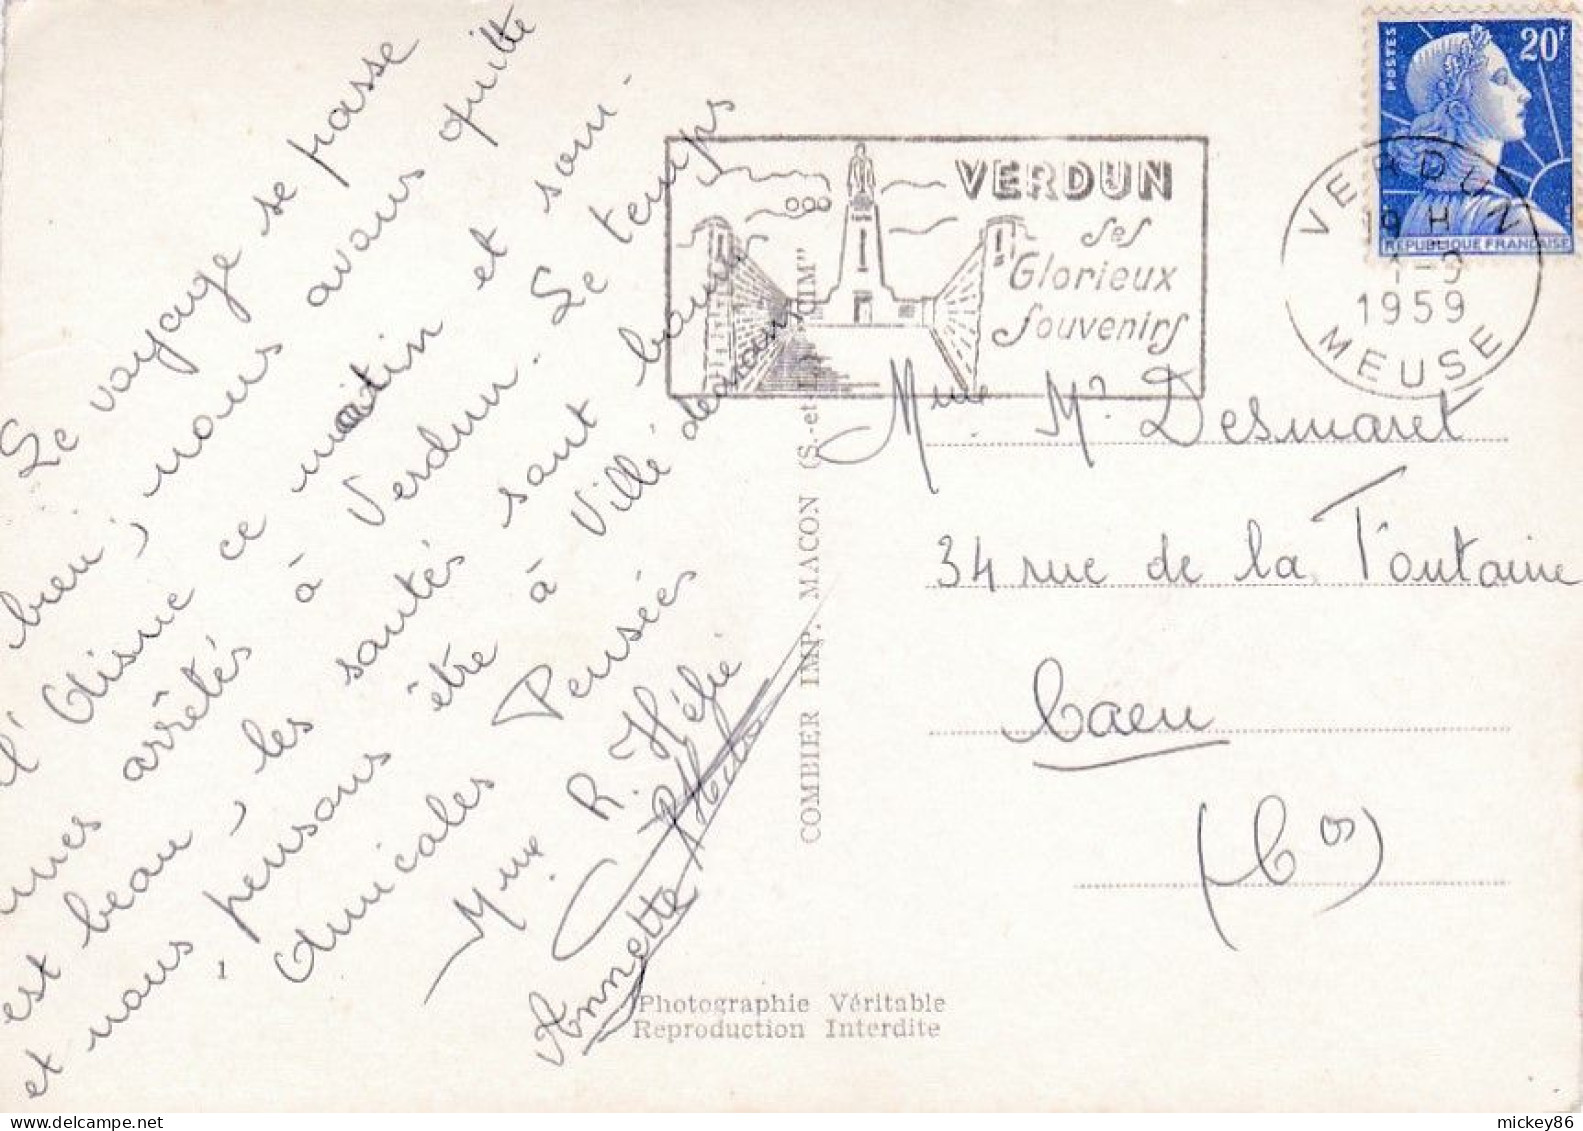 Le voyage se passe
bien, nous avons quitté
l'Aisne ce matin et som-
mes arrêtés à Verdun. Le temps
est beau, les santés sont bonnes
et nous pensons être à Villé demain
Amicales Pensées
Mme R. Hélie
Annette
COMBIER IMP. MACON (S.-et-L.) "CIM"
Photographie Véritable
Reproduction Interdite
VERDUN
ses
Glorieux
Souvenirs
POSTES
20F
REPUBLIQUE FRANÇAISE
VERDUN
19 H
-9
1959
MEUSE
Mme M. Desmaret
34 rue de la Fontaine
Caen
(Cos)
mickey86